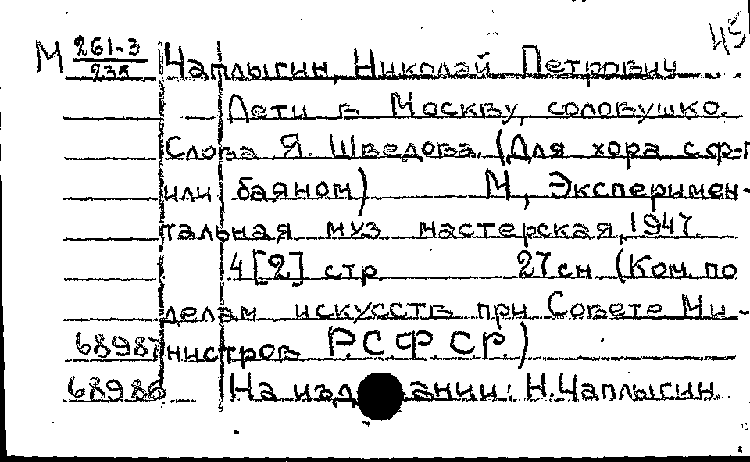 45
М 261-3/235 Чаплыгин, Николай Петрович
Лети в Москву, соловушко.
Слова Я. Шведова. (Для хора с ф-п
или баяном) М., Эксперимен-
тальная муз мастерская, 1947.
4 [2] стр 27 см (Ком. по
делам искусств при Совете Ми-
68987 нистров Р.С.Ф.С.Р.)
68986 На издании: Н. Чаплыгин.